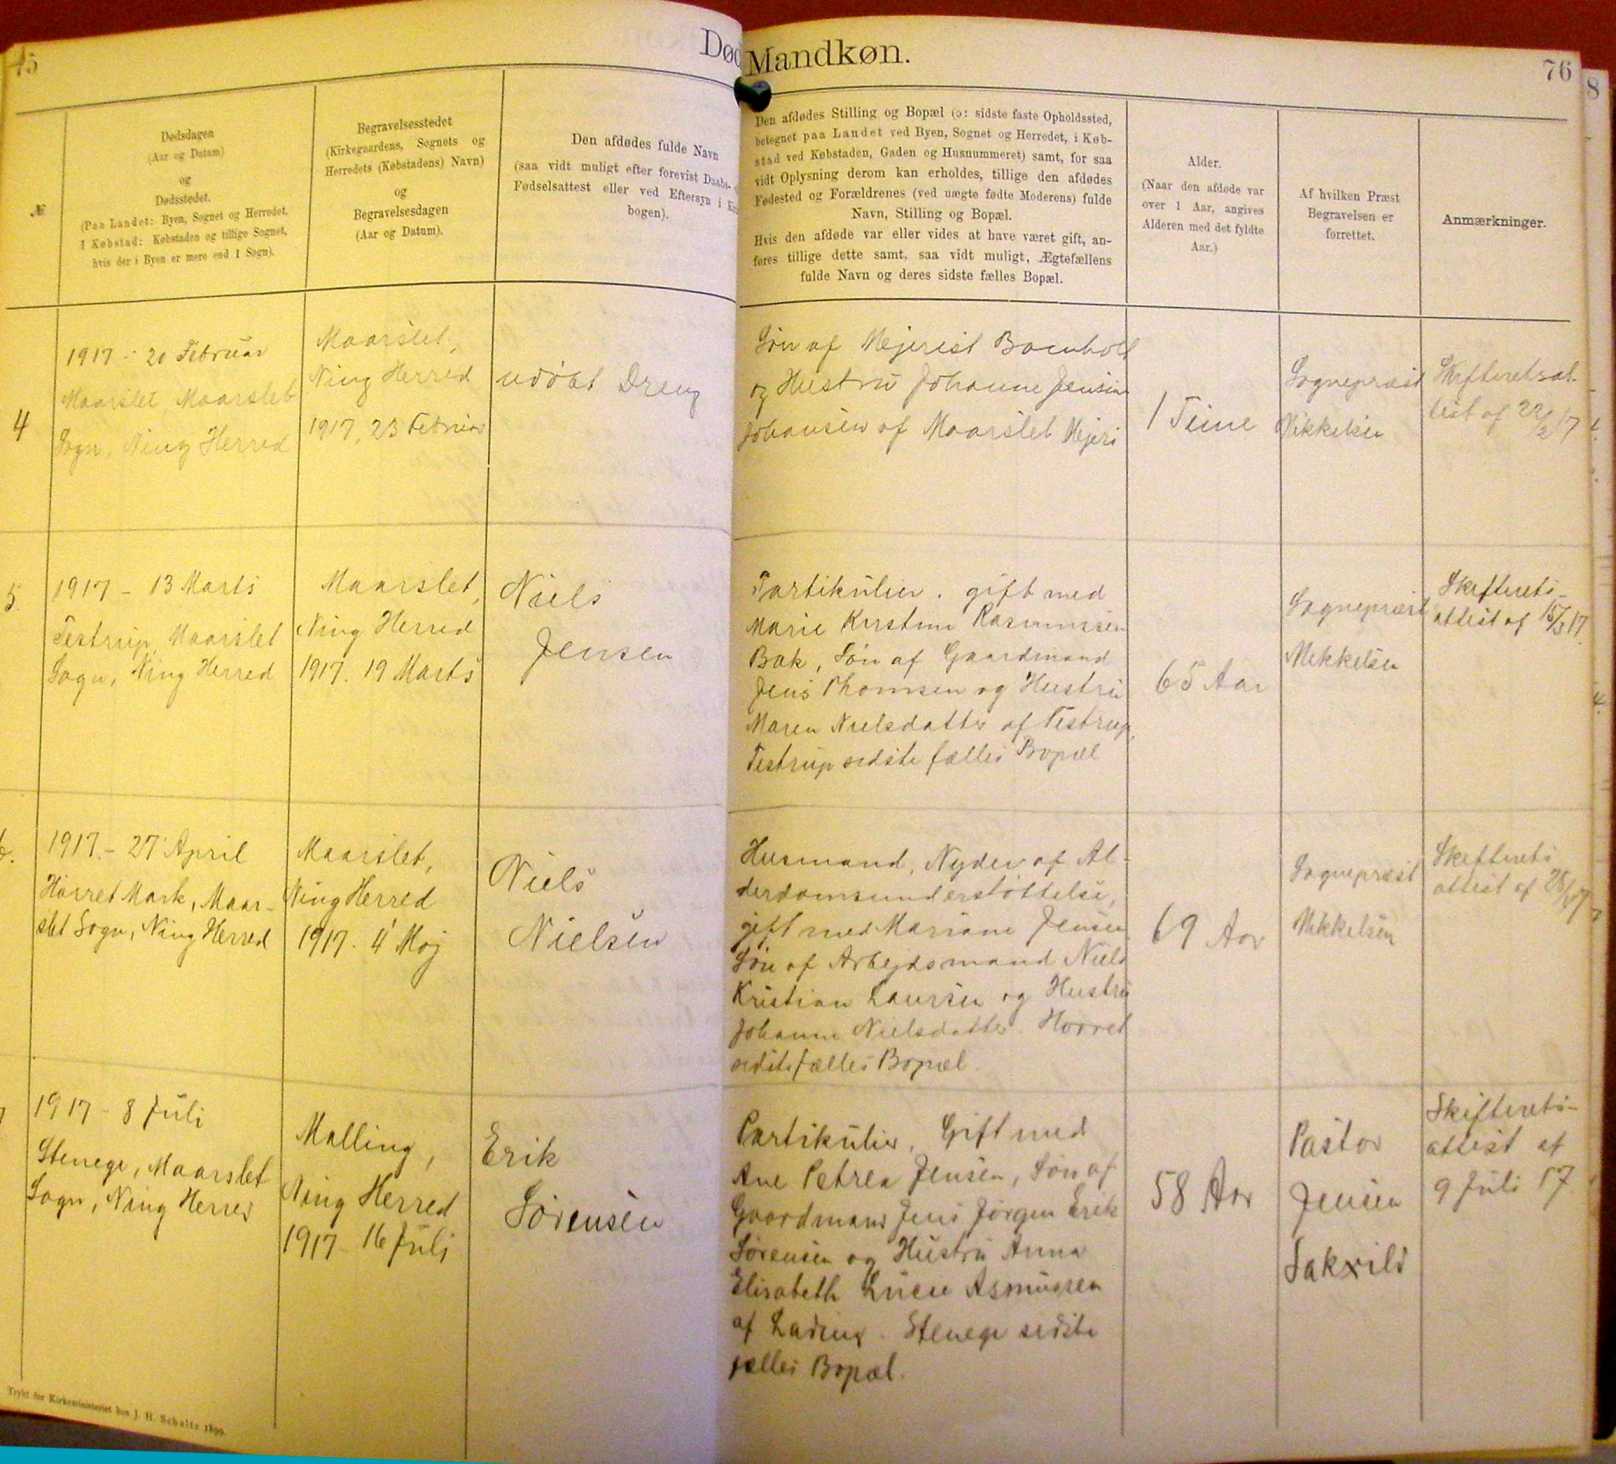 45
Død
Mandkøn.
76
8
№
Dødsdagen
(Aar og Datum)
og
Dødsstedet.
(Paa Landet: Byen, Sognet og Herredet.
I Købstad: Købstaden og tillige Sognet,
hvis der i Byen er mere end 1 Sogn).
Begravelsesstedet
(Kirkegaardens, Sognets og
Herredets (Købstadens) Navn)
og
Begravelsesdagen
(Aar og Datum).
Den afdødes fulde Navn
(saa vidt muligt efter forevist Daabs-
Fødselsattest eller ved Eftersyn i
bogen).
Den afdødes Stilling og Bopæl (ɔ: sidste faste Opholdssted,
betegnet paa Landet ved Byen, Sognet og Herredet, i Køb-
stad ved Købstaden, Gaden og Husnummeret) samt, for saa
vidt Oplysning derom kan erholdes, tillige den afdødes
Fødested og Forældrenes (ved uægte fødte Moderens) fulde
Navn, Stilling og Bopæl.
Hvis den afdøde var eller vides at have været gift, an-
føres tillige dette samt, saa vidt muligt, Ægtefællens
fulde Navn og deres sidste fælles Bopæl.
Alder.
(Naar den afdøde var
over 1 Aar, angives
Alderen med det fyldte
Aar.)
Af hvilken Præst
Begravelsen er
forrettet.
Anmærkninger.
4
1917 - 20 Februar
Maarslet, Maarslet
Sogn, Ning Herred
Maarslet,
Ning Herred
1917, 23 Februar
udøbt Dreng
Søn af Mejerist
og Hustru Johanne Jensine
Johansen af Maarslet Mejeri
1 Time
Sognepræst
Mikkelsen
Skifteretsat-
test af 22/2 17
5.
1917 - 13 Marts
Testrup, Maarslet
Sogn, Ning Herred
Maarslet,
Ning Herred
1917. 19 Marts
Niels
Jensen
Partikulier. gift med
Marie Kirstine Rasmussen
Bak, Søn af Gaardmand
Jens Thomsen og Hustru
Maren Nielsdatter af Testrup,
Testrup sidste fælles Bopæl
65 Aar
Sognepræst
Mikkelsen
Skifterets-
attest af 15/3 17.
6.
1917. - 27 April
Hørret Mark, Maar-
slet Sogn, Ning Herred
Maarslet,
Ning Herred
1917. 4 Maj
Niels
Nielsen
Husmand, Nyder af Al-
derdomsunderstøttelse,
gift med Mariane Jensen
Søn af Arbejdsmand Niels
Kristian Laursen og Hustru
Johanne Nielsdatter. Hørret
sidste fælles Bopæl.
69 Aar
Sognepræst
Mikkelsen
Skifterets
attest af
1917 - 8 Juli
Stenege, Maarslet
Sogn, Ning Herred
Malling,
Ning Herred
1917 - 16 Juli
Erik
Sørensen
Partikulier, Gift med
Ane Petrea Jensen, Søn af
Gaardmand Jens Jørgen Erik
Sørensen og Hustru Anna
Elisabeth Lucie Asmussen
af Lading. Stenege sidste
fælles Bopæl.
58 Aar
Pastor
Jensen
Sakrild
Skifterets-
attest af
9 Juli 17.
Trykt for Kirkeministeriet hos J. H. Schultz 1899.